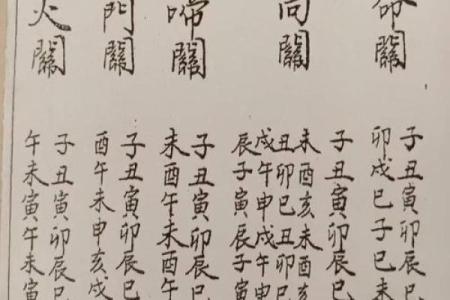 關
子丑寅卯辰巳
卯戌巳子巳未
關
子丑寅卯辰巳
未酉亥未酉亥
丑卯巳丑卯巳
戌午申戌午申
辰子寅辰子寅
啼關
子丑寅卯辰巳
未酉午未酉午
門關
子丑寅卯辰巳
酉午未申亥戌
火關
子丑寅卯辰巳
午未寅午未寅